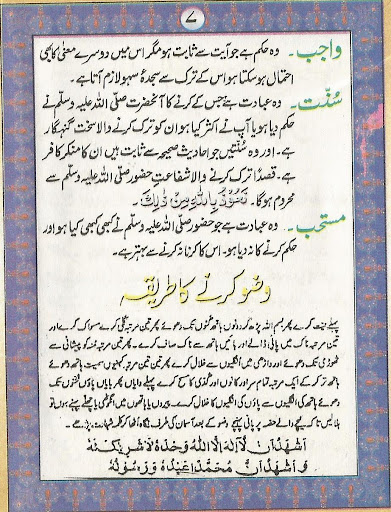 ۷
واجب۔ وہ حکم ہے جو آیت سے ثابت ہو مگر اس میں دوسرے معنٰی کا بھی
احتمال ہو سکتا ہو اس کے ترک سے سجدۂ سہو لازم آتا ہے۔
سُنّت۔ وہ عبادت ہے جس کے کرنے کا آنحضرت صلّی اللہ علیہ وسلّم نے
حکم دیا ہو یا آپ نے اکثر کیا ہو ان کو ترک کرنے والا سخت گنہگار
ہے۔ اور وہ سُنّتیں جو احادیث صحیحہ سے ثابت ہیں ان کا منکر کافر
ہے۔ قصداً ترک کرنے والا شفاعت حضور صلّی اللہ علیہ وسلّم سے
محروم ہوگا۔ نَعُوْذُ بِاللّٰہِ مِنْ ذٰلِکَ۔
مستحب۔ وہ عبادت ہے جو حضور صلّی اللہ علیہ وسلّم نے کبھی کبھی کیا ہو اور
حکم کرنے کا نہ دیا ہو۔ اس کا کرنا نہ کرنے سے بہتر ہے۔
وضو کرنے کا طریقہ
پہلے نیت کرے پھر بسم اللہ پڑھ کر دونوں ہاتھ گٹوں تک دھوئے پھر تین مرتبہ کلی کرے مسواک کرے اور
تین مرتبہ ناک میں پانی ڈالے اور بائیں ہاتھ سے ناک صاف کرے۔ پھر تین مرتبہ منہ کو پیشانی سے
ٹھوڑی تک دھوئے اور داڑھی میں انگلیوں سے خلال کرے پھر تین تین مرتبہ کہنیوں سمیت ہاتھ دھوئے
ہاتھ تر کر کے ایک مرتبہ تمام سر اور کانوں اور گدی کا مسح کرے پہلے دایاں پھر بایاں پاؤں ٹخنوں تک
دھوئے ہاتھ کی انگلیوں سے پاؤں کی انگلیوں کا خلال کرے۔ پیروں یا ہاتھوں میں انگوٹھی یا چھلے پہنے ہوں تو
ہلا لیں تاکہ نیچے والے حصہ پر پانی پہنچے وضو کے بعد آسمان کی طرف نگاہ اٹھا کر کلمہ شہادت پڑھے۔
اَشْهَدُ اَنْ لَّآ اِلٰهَ اِلَّا اللّٰهُ وَحْدَهٗ لَا شَرِيْكَ لَهٗ
وَ اَشْهَدُ اَنَّ مُحَمَّدًا عَبْدُهٗ وَ رَسُوْلُهٗ